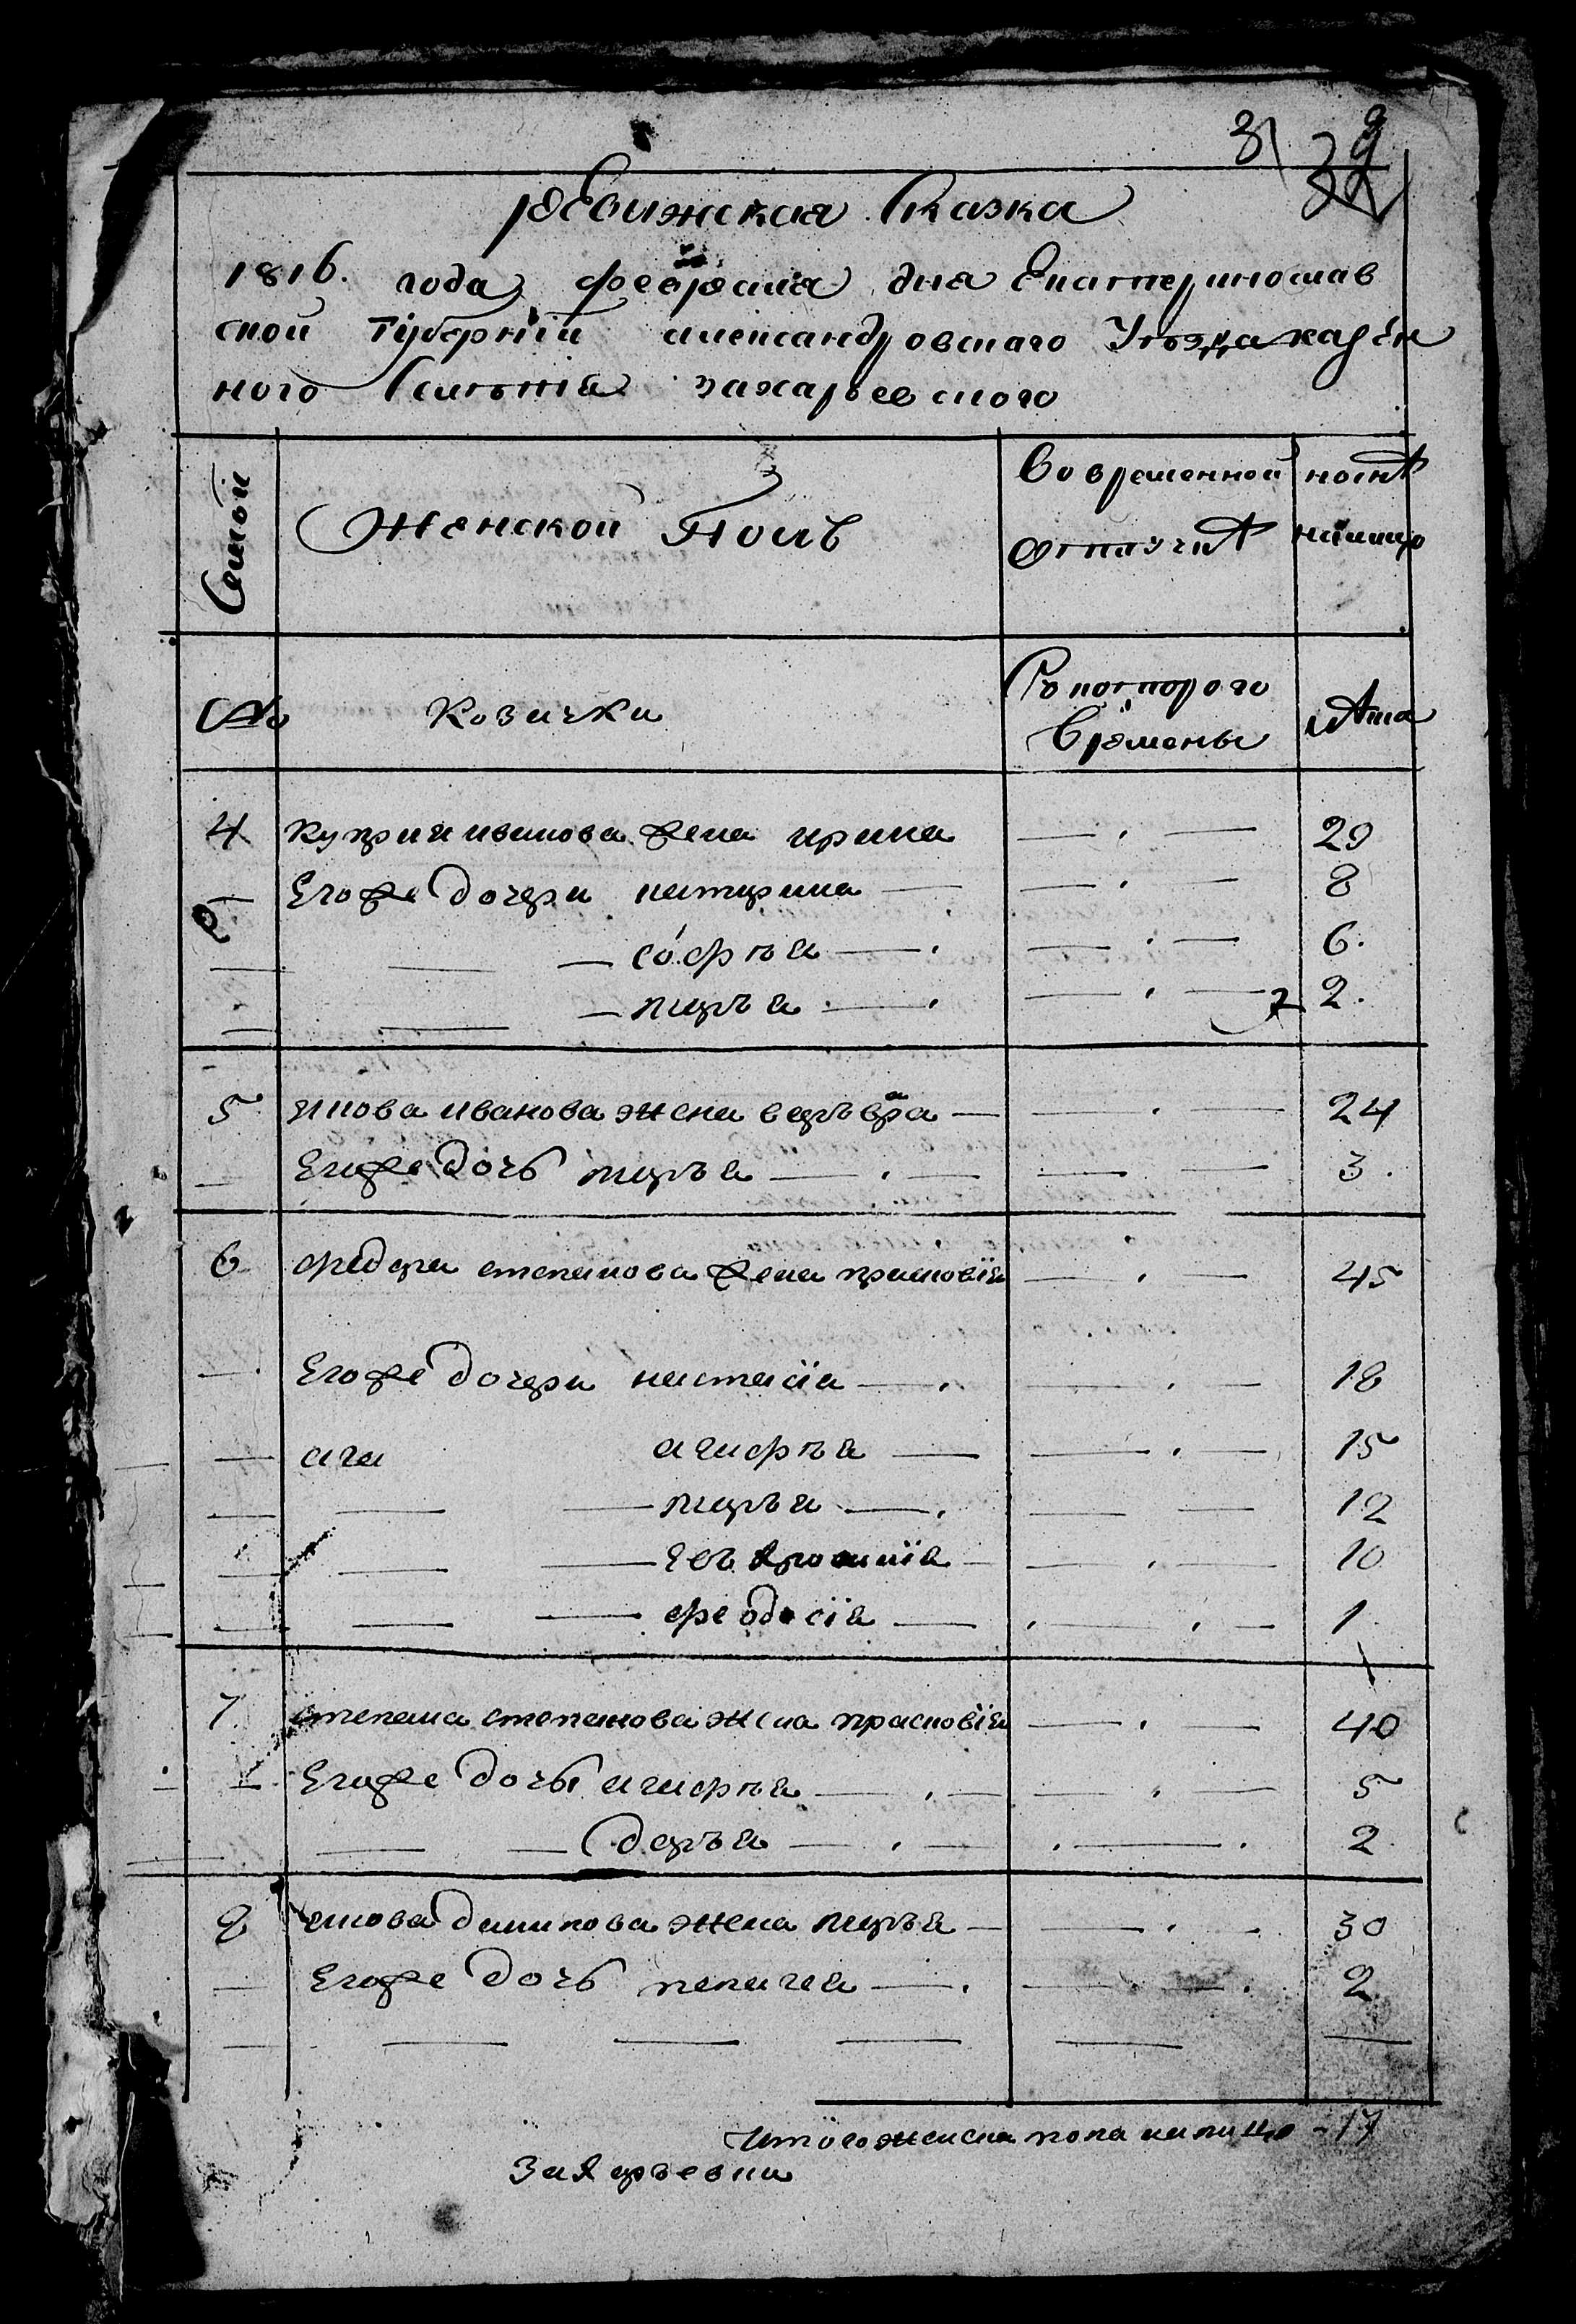 31 32
ревижская Сказка
1816. года февраля дня Екатеринослав
ской губернии александровскаго Уезда казён
ного Селения захарьевского
Семьи
Женской Полъ
Во временной отлучкѣ
налицо
№
Козачки
Съ которого времены
лѣта
4 куприя иванова жена ирина 29
Его же дочери катерина 8
софья 6.
марья 2.
5 якова иванова жена варъвара 24
Его же дочь марья 3.
6 федора степанова жена прасковїя 45
Его же дочери настасїя 18
агафья 15
марья 12
10
феодосїя 1
7 степана степанова жена прасковїя 40
Его же дочь агафья 5
дарья 2
8 якова данилова жена марья 30
Его же дочь пелагея 2
Итого женска пола налицо - 17